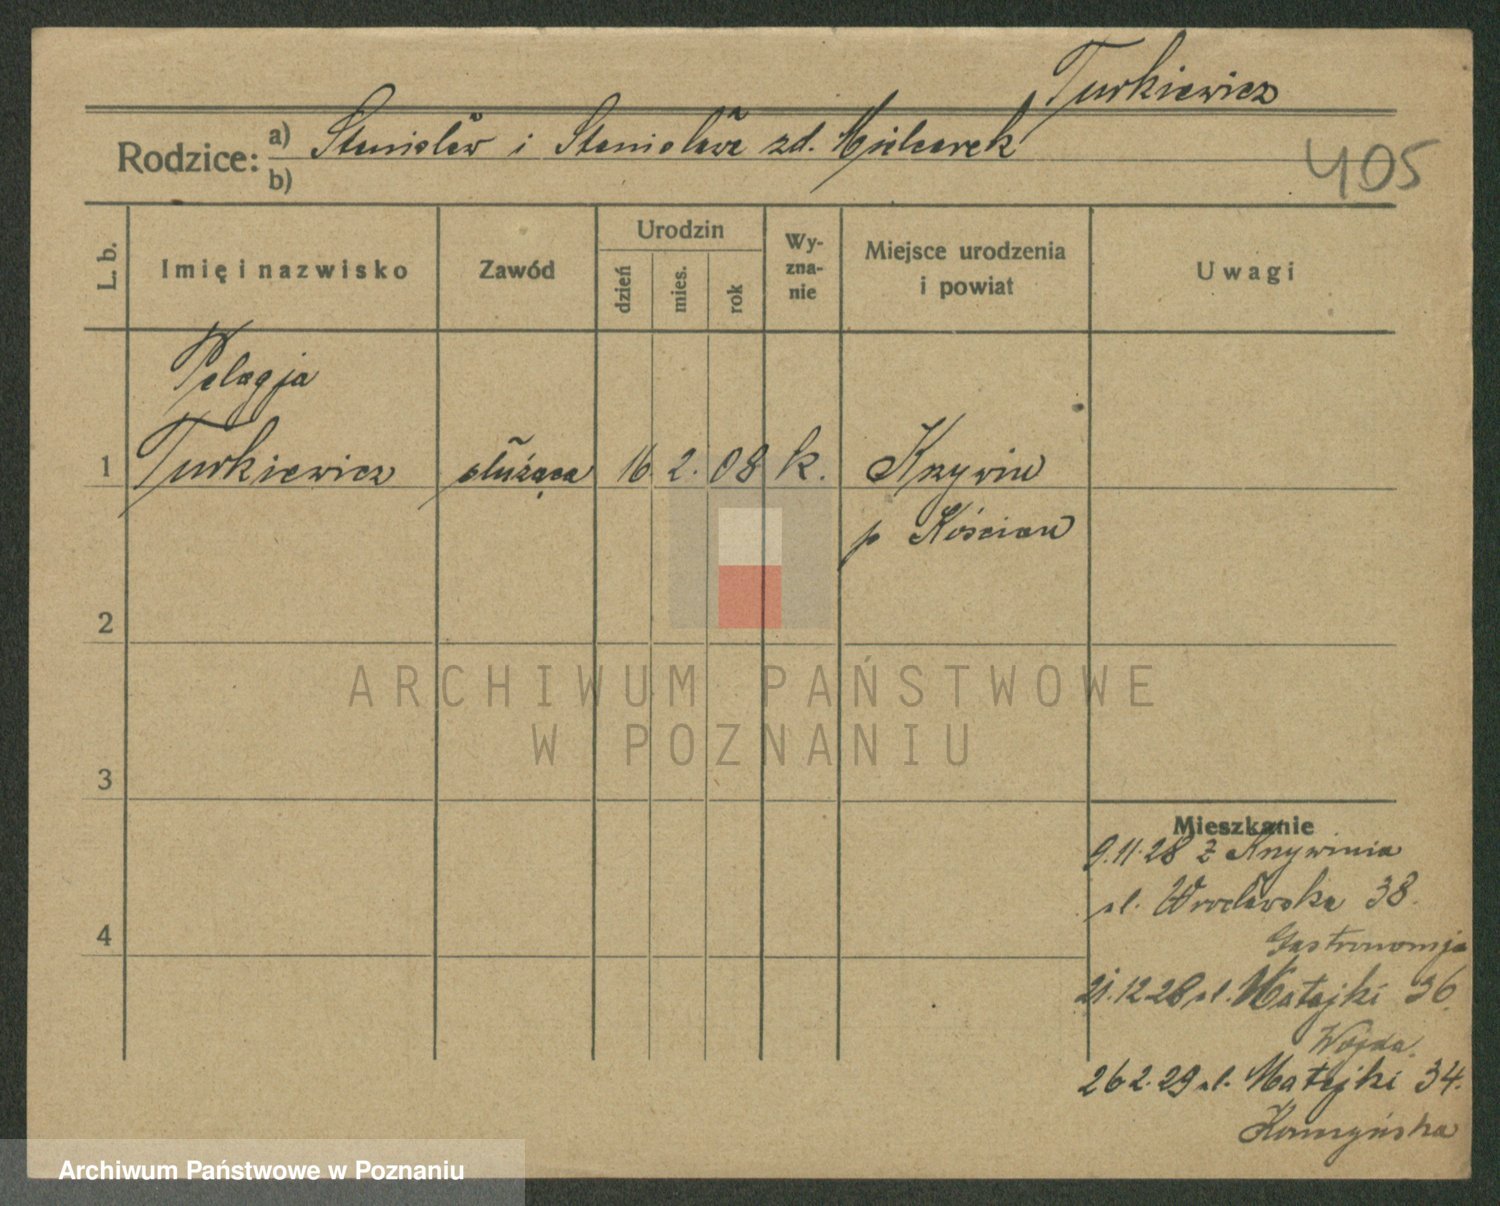 Turkiewicz
Rodzice: a) Stanisław i Stanisława zd. Mielcarek
b)
405
L. b.
Imię i nazwisko
Zawód
Urodzin
dzień
mies.
rok
Wy-
zna-
nie
Miejsce urodzenia
i powiat
Uwagi
Pelagja
1 Turkiewicz służąca 16 2. 08 k. Krzywiń
p Kościan
2
3
4
ARCHIWUM PAŃSTWOWE
W POZNANIU
Mieszkanie
9.11.28 z Krzywinia
ul. Wrocławska 38.
Gastronomja
21.12.28 ul. Matejki 36.
Wojda.
26.2.29 ul. Matejki 34.
Archiwum Państwowe w Poznaniu